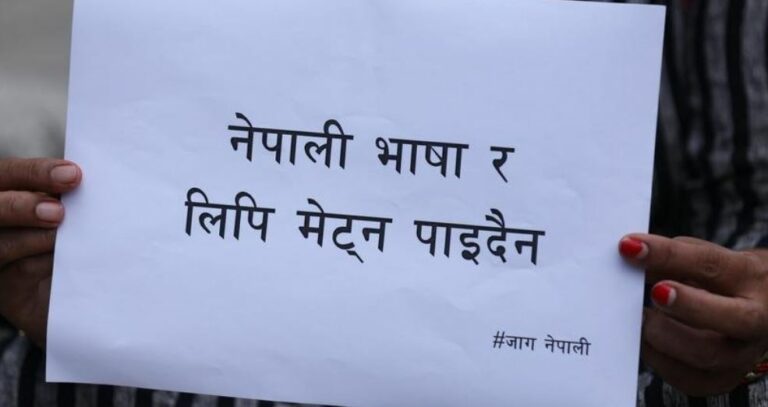 नेपाली भाषा र
लिपि मेट्न पाइदैन
#जाग नेपाली